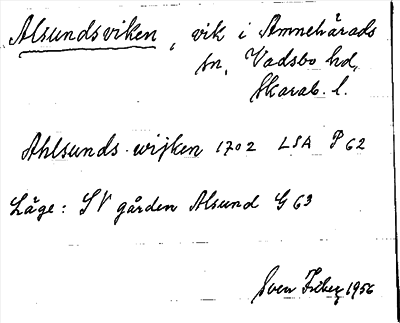 Alsundsviken, vik i Amnehärads
sn, Vadsbo hd,
Skarab. l.
Ahlsunds wijken 1702 LSA P 62
Läge: SV gården Alsund G 63
Sven Friberg 1956